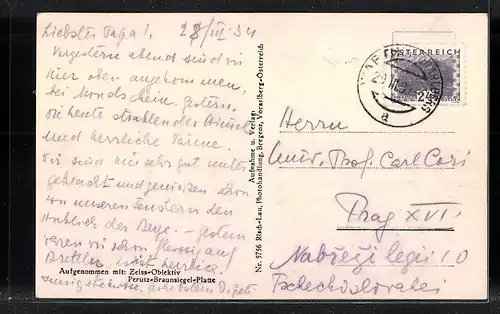 Liebster Papa!, 28/III 34
Vorgestern abend sind wir
hier oben angekommen,
bei Mondschein. Gestern
und heute strahlender Himmel
und herrliche Wärme.
Wir sind sehr gut unter
gebracht und geniessen schon
von unseren Fenstern den
Anblick der Berge. – gestern
waren wir schon fleissig auf
Brettln, herrlich!
Aufgenommen mit: Zeiss-Objektiv
Perutz-Braunsiegel-Platte
Nr. 5756 Risch-Lau, Photohandlung, Bregenz, Vorarlberg-Österreich
Aufnahme u. Verlag:
ÖSTERREICH
a
Herrn
Univ. Prof. Carl Cori
Prag XVI
Nabřeži legií 10
Tschechoslovakei